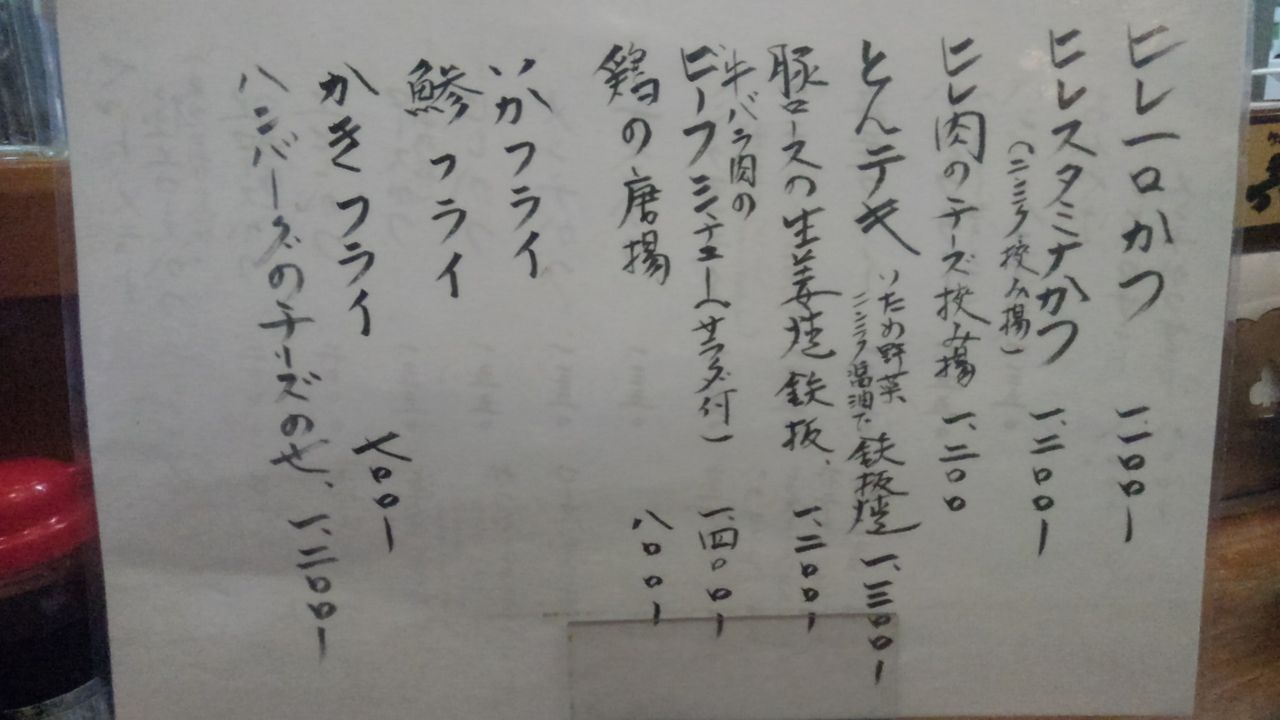 ヒレ一口かつ 一、一〇〇ー
ヒレスタミナかつ 一、二〇〇ー
(ニンニク挟み揚)
ヒレ肉のチーズ挟み揚 一、二〇〇
とんテキ いため野菜 ニンニク醤油で 鉄板焼 一、三〇〇ー
豚ロースの生姜焼鉄板、 一、二〇〇ー
牛バラ肉の
ビーフシチュー(サラダ付) 一、四〇〇ー
鶏の唐揚 八〇〇ー
いかフライ
鯵フライ
かきフライ 七〇〇ー
ハンバーグのチーズのせ、 一、二〇〇ー